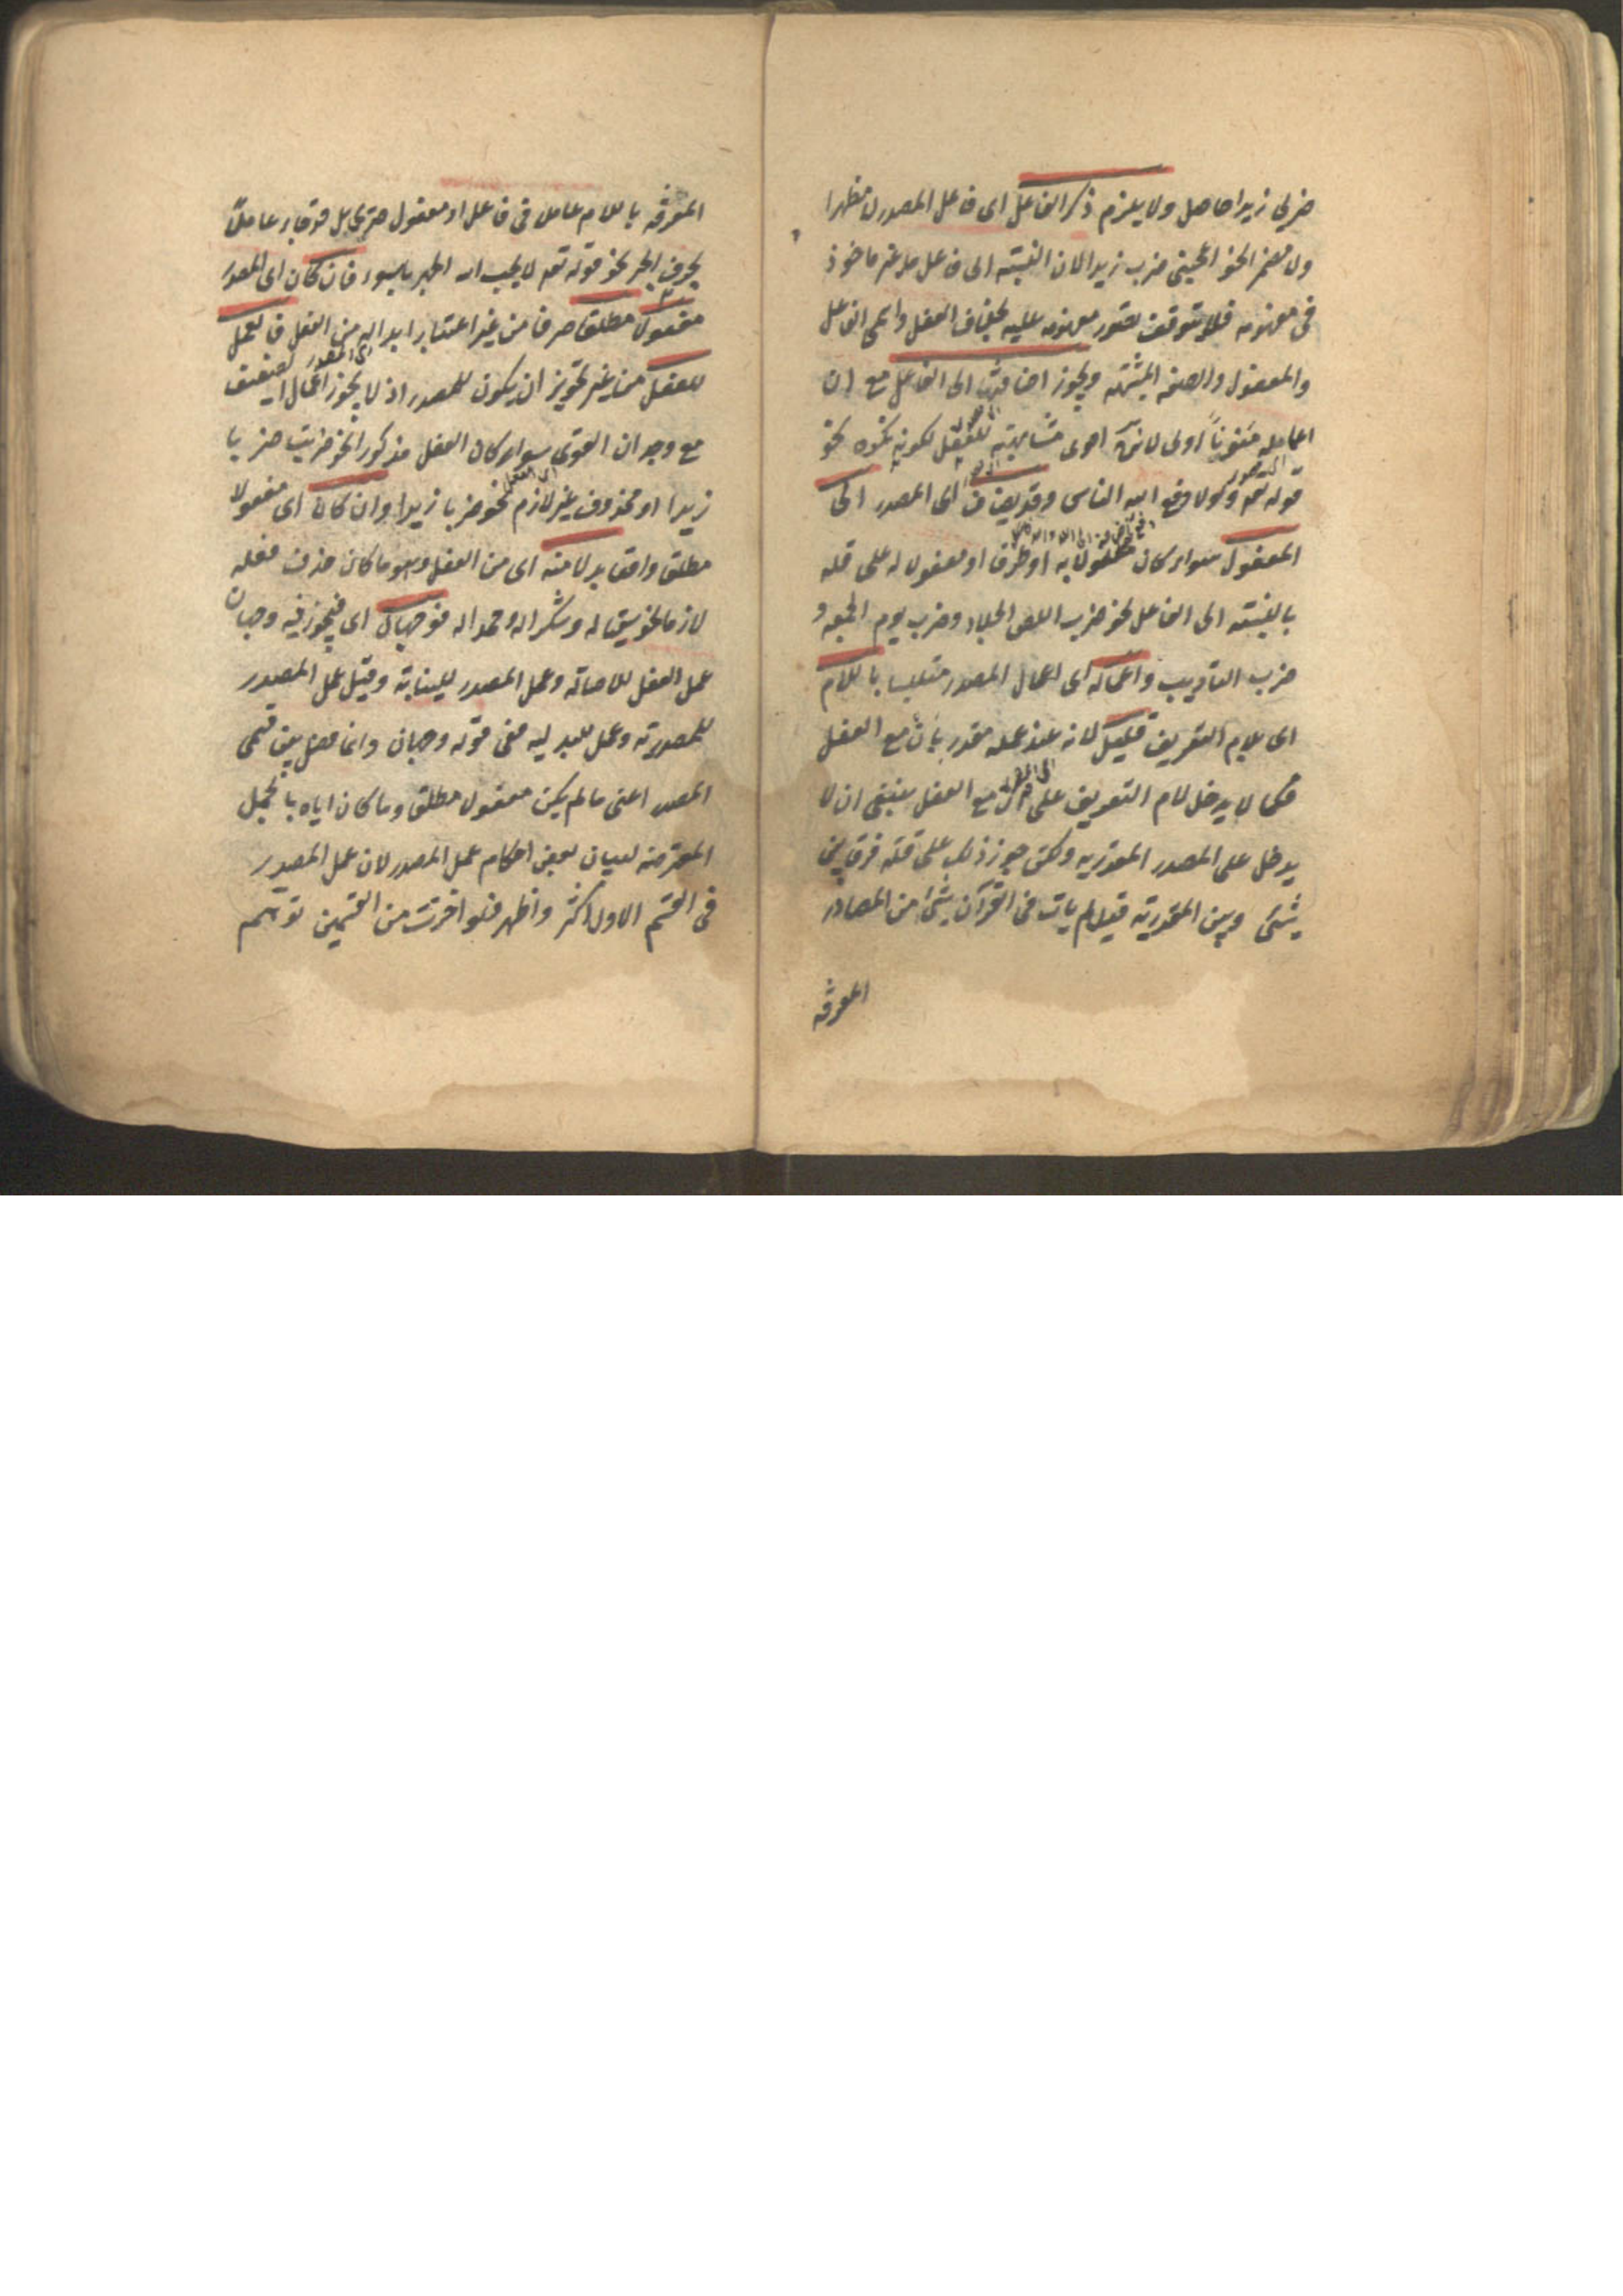 ضربی زیدا حاصل ولا یلزم ذکر الفاعل ای فاعل المصدر لا مظهرا
ولا مضمرا نحو اعجبنی ضرب زیدا لان النسبة الی فاعل ما غیر ماخوذ
فی مفهومه فلا یتوقف تصور مفهومه علیه بخلاف الفعل واسمی الفاعل
والمفعول والصفة المشبهة ویجوز اضافته الی الفاعل مع ان
اعماله منونا اولی لانه اقوی مشابهته للفعل لکونه نکرة نحو
قوله تعہ ولولا دفع الله الناس وقد یضاف ای المصدر الی
المفعول سواء کان مفعولا به او ظرفا او مفعولا له علی قلة
بالنسبة الی الفاعل نحو ضرب اللص الجلاد وضرب یوم الجمعة و
ضرب التادیب واعماله ای اعمال المصدر متلبسا باللام
ای بلام التعریف قلیل لانه عند عمله مقدر بان مع الفعل
فکما لا یدخل لام التعریف علی ان مع الفعل ینبغی ان لا
یدخل علی المصدر المقدر به ولکن جوز ذلک علی قلة فرقا بین
شئ وبین المقدر به قیل لم یات فی القرآن شئ من المصادر
المعرفة
المعرفة باللام عامل فی فاعل او مفعول صریح بل قد جاء عاملا
بحرف الجر نحو قوله تعہ لا یحب الله الجهر بالسوء فان کان ای المصدر
مفعولا مطلقا صرفا من غیر اعتبار ابداله من الفعل فالعمل
للفعل من غیر تجویز ان یکون للمصدر اذ لا یجوز اعمال الضعیف
ای المصدر
مع وجدان القوی سواء کان الفعل مذکورا نحو ضربت ضربا
زیدا او محذوف غیر لازم نحو ضربا زیدا وان کان ای مفعولا
ای الفعل
مطلق واقعا بدلا منه ای من الفعل وهو ما کان حذف فعله
لازما نحو سقیا له وشکرا له وحمدا له فوجهان ای فیجوز فیه وجهان
عمل الفعل للاصالة وعمل المصدر للنیابة وقیل عمل المصدر
للمصدریة وعمل للبدلیه ففی قوله وجهان وانما فصل بین قسمی
المصدر اعنی ما لم یکن مفعولا مطلقا وما کان ایاه بالجمل
المعترضة لبیان بعض احکام عمل المصدر لان عمل المصدر
فی القسم الاول اکثر واظهر فلو اخرت من القسمین توهم